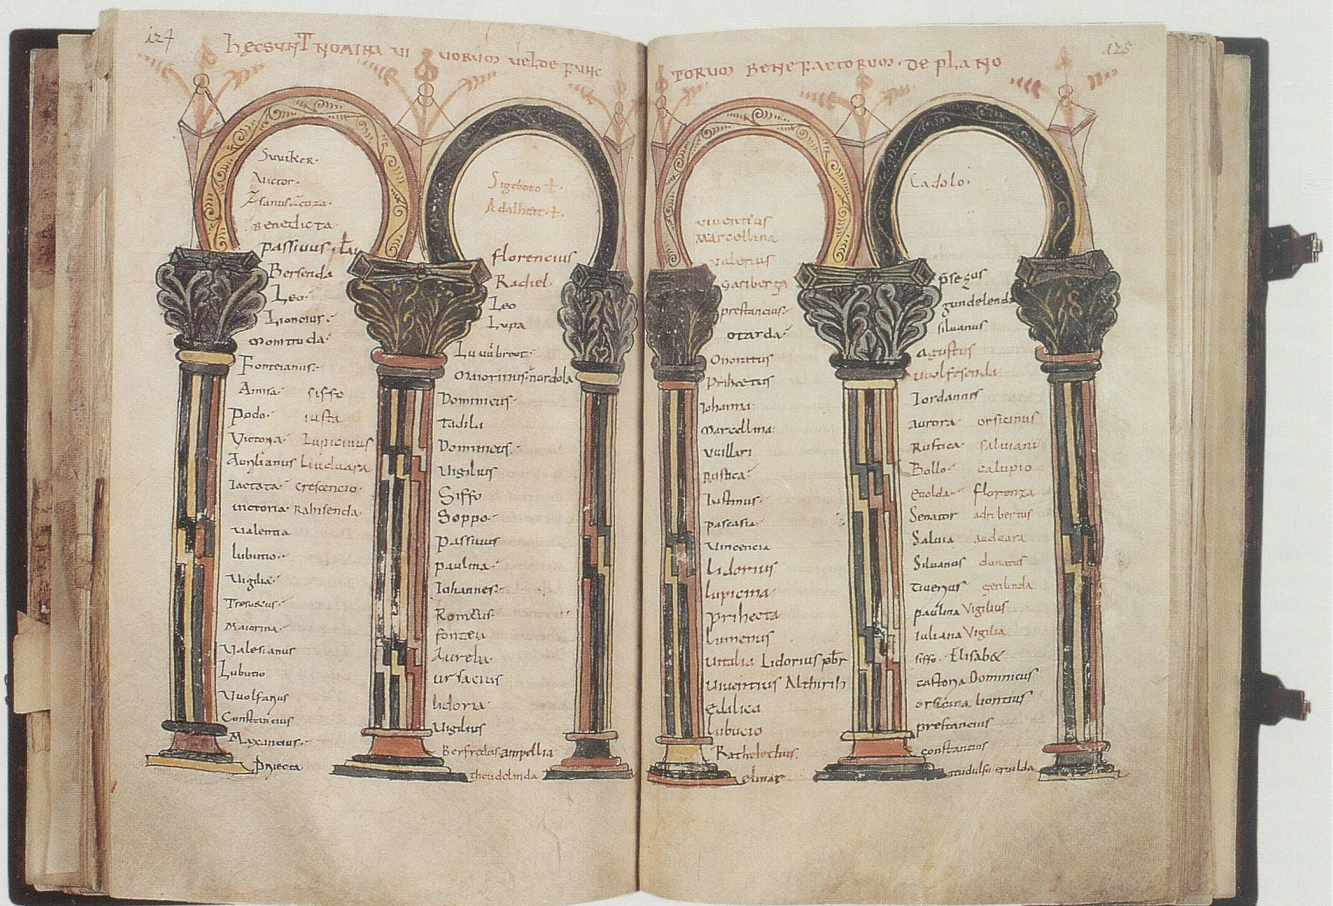 124
hęc sunt nomina vi vorum vel defunc
Suuiker.
Victor.
Benedicta
passiuus
Bersenda
Leo.
Lioncius.
Monttuda.
Fonteianus.
Anna. siffo
Podo. iusta
Victoria. Lupicinus
Aurilianus Liuduara
Iactata. Crescencio.
victoria. Ranisenda.
valentia
lubucio.
Vigilia.
Tresuncus.
Maiorina.
Valerianus
Lubucio
Vuolfarius
Constancius
Maxancius.
priecta
Sigeboto
Adalheit
florencius
Rachel
Leo
Lupa
Luuibrout.
Maiorinus. nordola
Dominicus.
Tadila
Dominicus.
Vigilius
Siffo
Soppo.
passiuus
paulina.
Iohannes.
Romeus.
fonteia
Aurelia.
ursacius
lidoria.
Vigilius
Berfredus ampellia
theudelinda
125
torum benefactorum. de plano
viuentius
Marcellina
valerius
Gariberga
prestancius.
otarda.
Onoratus
Priiectus
Iohanna.
Marcellina.
Vuillari
Rustica.
Iustinus.
pascasia.
Vincencia
Lidorius
lupicina
priiecta
Lumenus
vitalia Lidorius pbr
viuentius
Edalica
lubucio
Ratheleehus.
Cadolo.
gundelenda
siluanus
Agustus
vuolfesenda.
Iordannis
aurora. orsicinus
Rustica saluiani
Bollo. calupio
Euolda. florenza
Senator adribertus
Saluia audoara
Siluanus donatus
Tiuenus gerlinda
paulina Vigilius
Iuliana Vigilia
siffo. Elisab&
castoria Dominicus
orsicina lioncius
prestancius
constancius